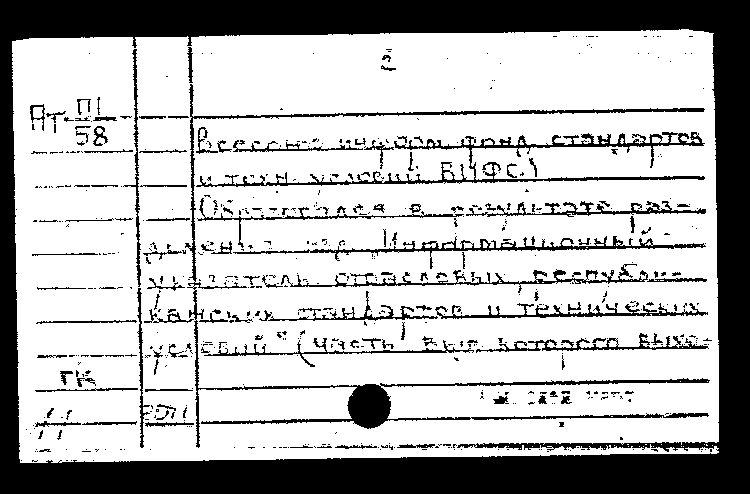 2
Ат П1
58
Всесоюз информ фонд стандартов
и техн. условий ВИФС)
Образовался в результате раз-
деления изд. „Информационный
указатель отраслевых, республи-
канских стандартов и технических
условий" (часть вып которого выхо-
ГК